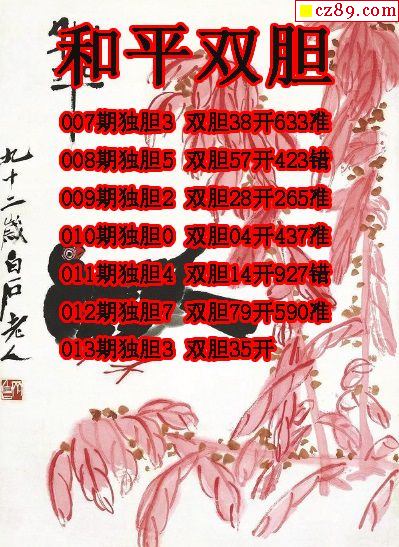 cz89.com
和平
和平双胆
007期独胆3 双胆38开633准
008期独胆5 双胆57开423错
009期独胆2 双胆28开265准
010期独胆0 双胆04开437准
011期独胆4 双胆14开927错
012期独胆7 双胆79开590准
013期独胆3 双胆35开
九十二岁白石老人